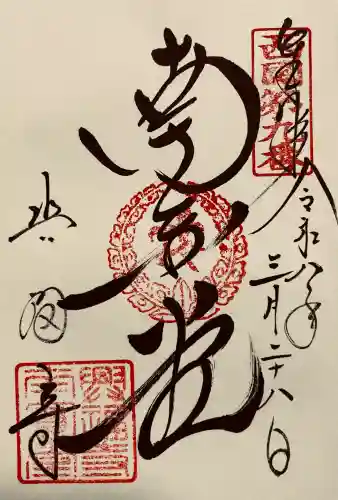 西国第九番
奉拝
令和八年
三月二十八日
南円堂
興福寺